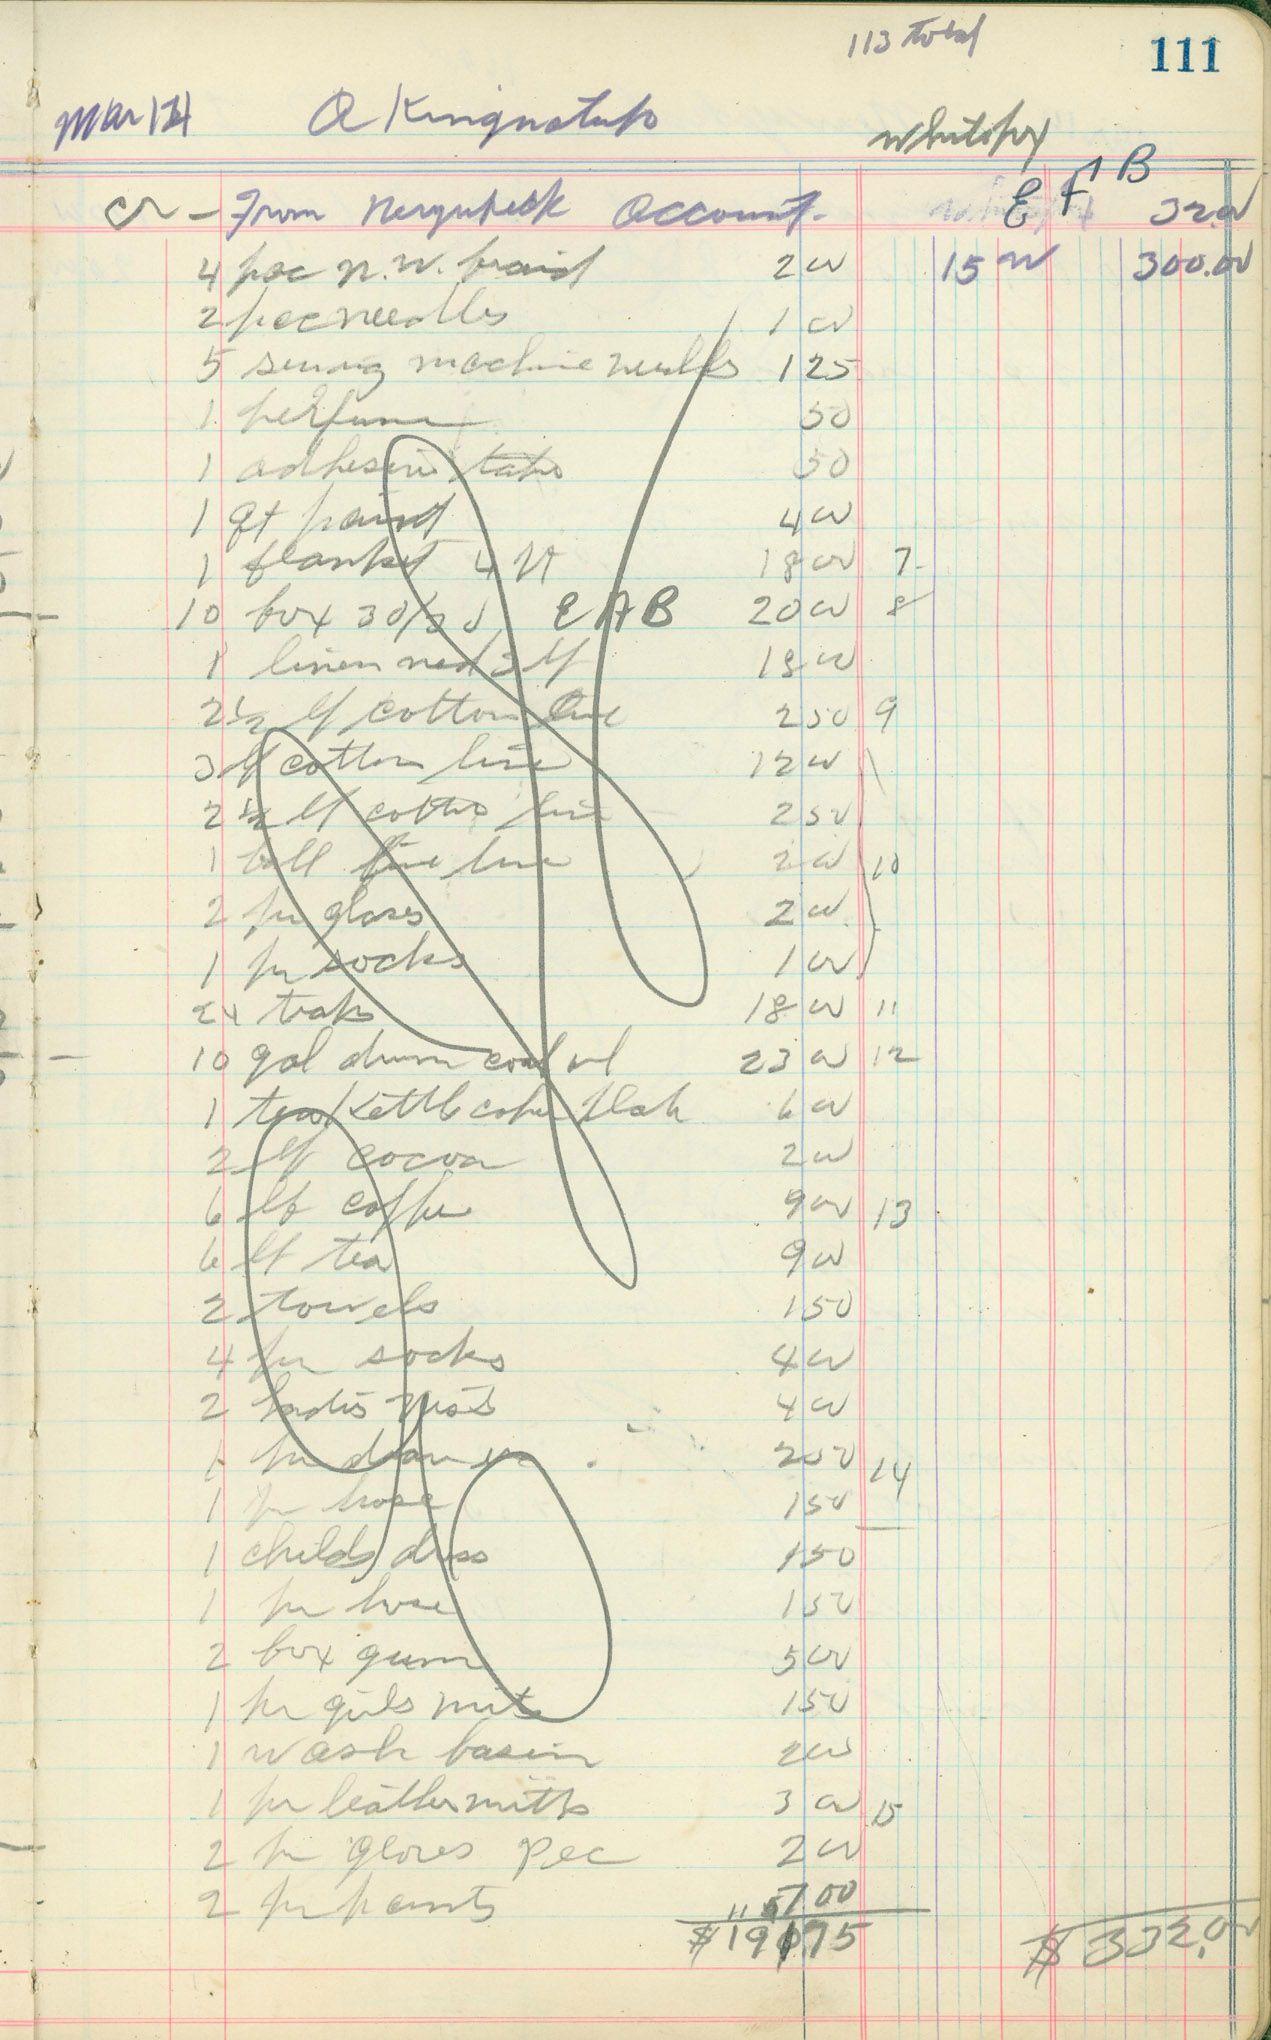 113 total
111
Mar 124 A Kingnatuk
whitefox
E F 1 B
Cr - From Account. 32.00
4 pac n.w. braid 2 00 15 00 300.00
2 pac needles 1 00
5 sewing machine needles 1 25
1 perfume 50
1 adhesive tape 50
1 qt paint 4 00
1 blanket 4 pt 18 00 7
10 box 30/30 E A B 20 00 8
1 linen 3 lb 18 00
2 1/2 lb cotton line 2 50 9
3 lb cotton line 12 00
2 1/2 lb cotton line 2 50
1 ball fine line 2 00 10
2 pr gloves 2 00
1 pr socks 1 00
24 traps 18 00 11
10 gal drum coal oil 23 00 12
1 tea kettle 6 00
2 lb cocoa 2 00
6 lb coffee 9 00 13
6 lb tea 9 00
2 towels 1 50
4 pr socks 4 00
2 ladies vests 4 00
1 pr drawers 2 00 14
1 pr hose 1 50
1 childs dress 1 50
1 pr hose 1 50
2 box gum 5 00
1 pr girls mits 1 50
1 wash basin 2 00
1 pr leather mitts 3 00 15
2 pr gloves pec 2 00
2 pr pants
$ 191 75 $ 332.00